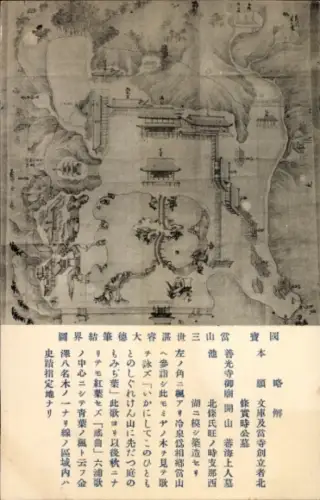 國寶 當山三世諶睿大德筆結界圖
略解
本願 文庫及當寺創立者北
條實時公墓
善光寺御廟 開山 審海上人墓
池 北條氏旺ノ時支那西
湖ニ模シ築造セリ
左ノ角ニ楓アリ冷泉爲相鄕當山
ヘ參詣シ此モミヂノ木ヲ見テ歌
ヲ詠ズ「いかにしてこのひとも
とのしぐれけん山に先だつ庭の
もみぢ葉」此歌ヨリ以後秋ニナ
リテモ紅葉セズ「謠曲」六浦歌
ノ中心ニシテ青葉ノ楓ト云フ金
澤八名木ノ一ナリ線ノ區域內ハ
史蹟指定地ナリ